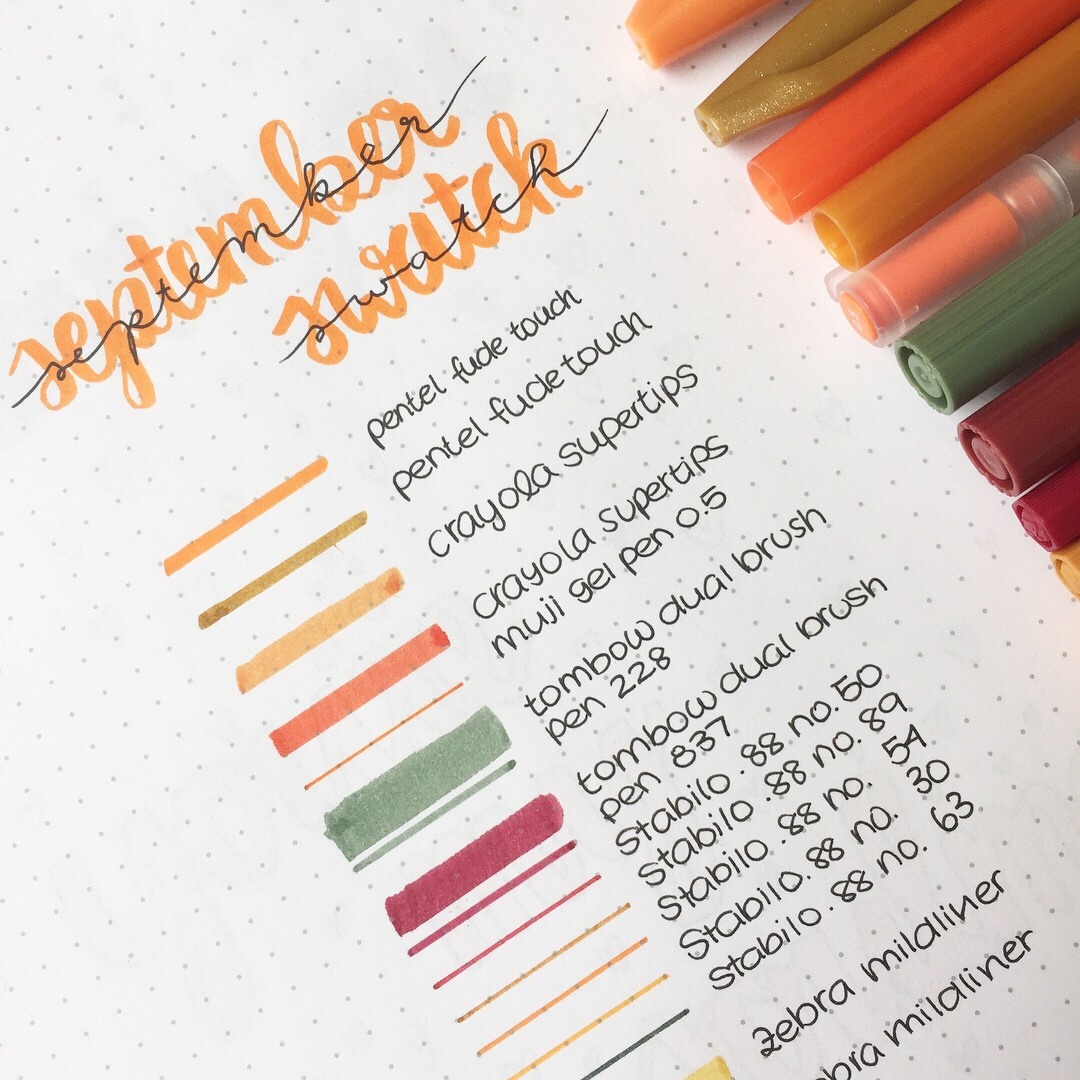 september
swatch
pentel fude touch
pentel fude touch
crayola supertips
crayola supertips
muji gel pen 0.5
tombow dual brush
pen 228
tombow dual brush
pen 837
Stabilo .88 no. 50
Stabilo .88 no. 89
Stabilo .88 no. 54
Stabilo .88 no. 30
Stabilo .88 no. 63
zebra mildliner
mildliner